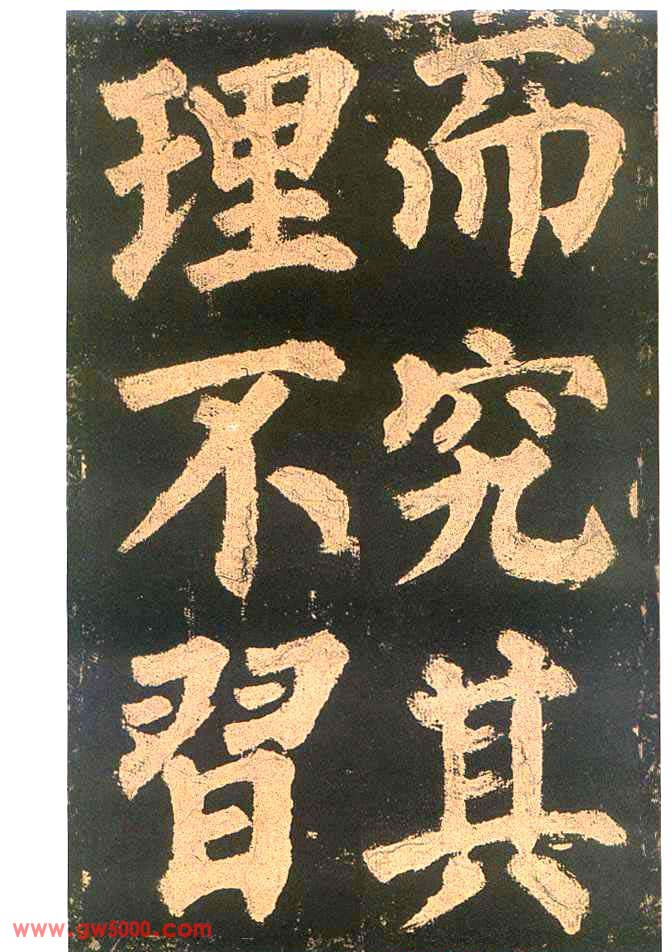 而究其
理不習
www.gw5000.com